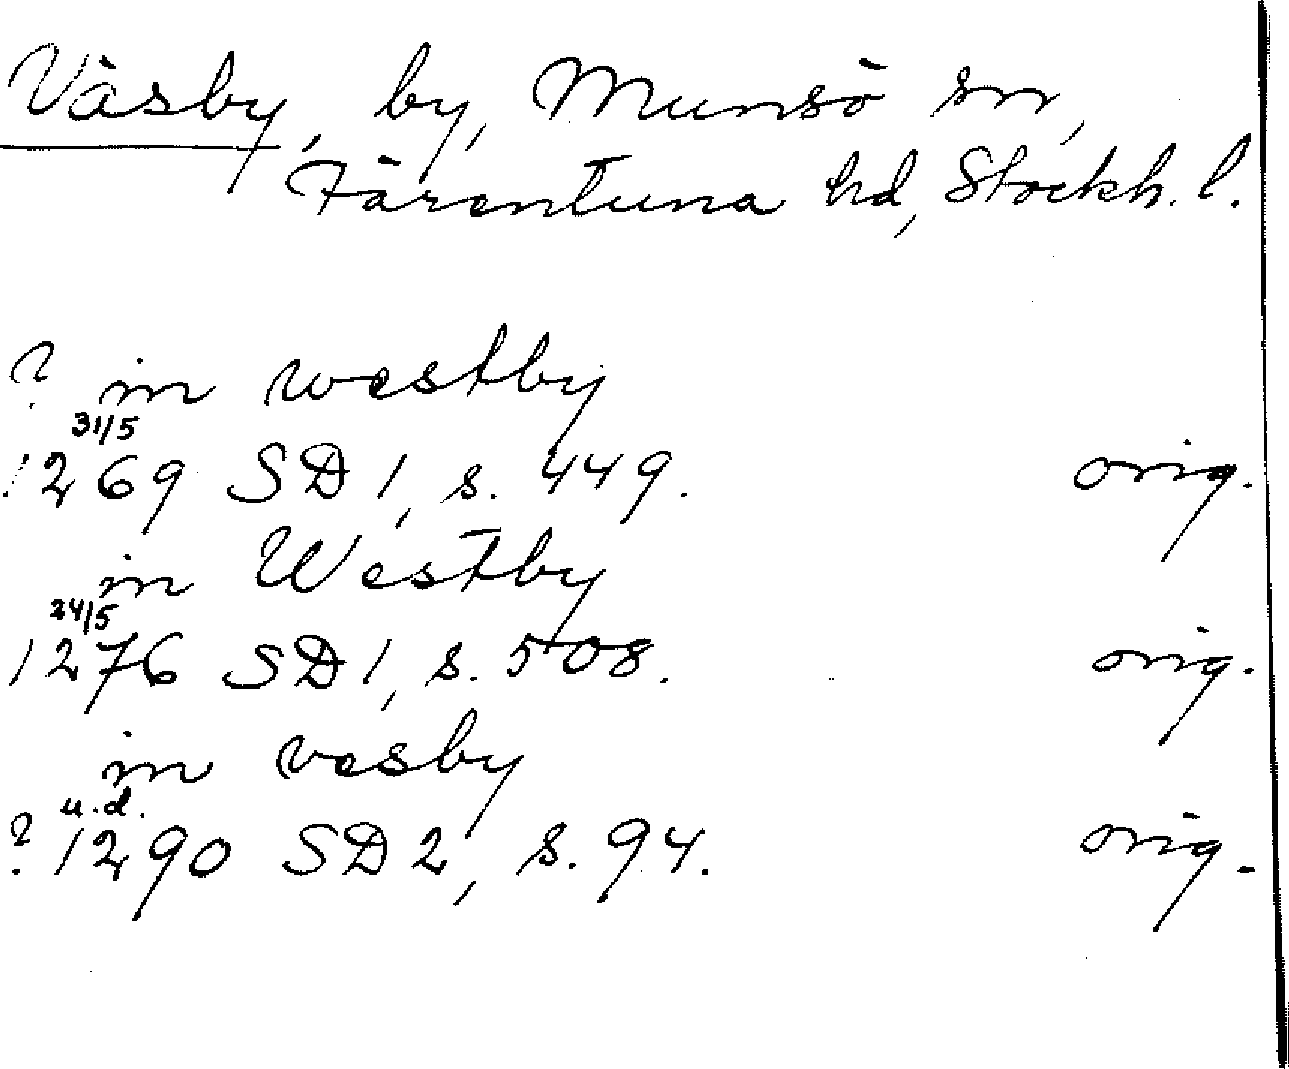 Väsby, by, Munsö sn,
Färentuna hd, Stockh. l.
? in westby
31/5
1269 SD 1, s. 449. orig.
in Westby
24/5
1276 SD 1, s. 508. orig.
in vesby
u.d.
? 1290 SD 2, s. 94. orig.